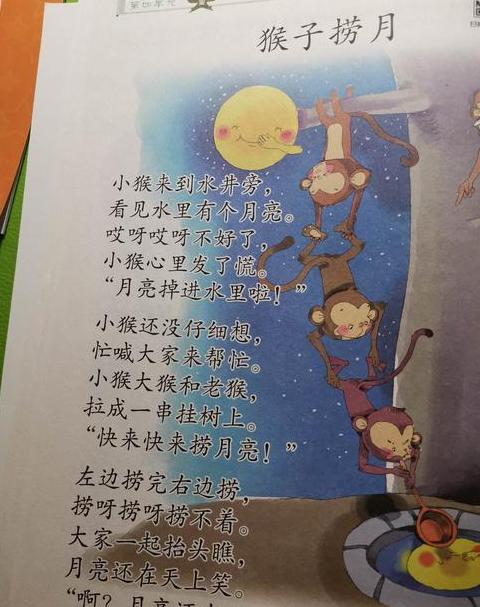 第四单元
猴子捞月
小猴来到水井旁，
看见水里有个月亮。
哎呀哎呀不好了，
小猴心里发了慌。
“月亮掉进水里啦！”
小猴还没仔细想，
忙喊大家来帮忙。
小猴大猴和老猴，
拉成一串挂树上。
“快来快来捞月亮！”
左边捞完右边捞，
捞呀捞呀捞不着。
大家一起抬头瞧，
月亮还在天上笑。
“啊？月亮还